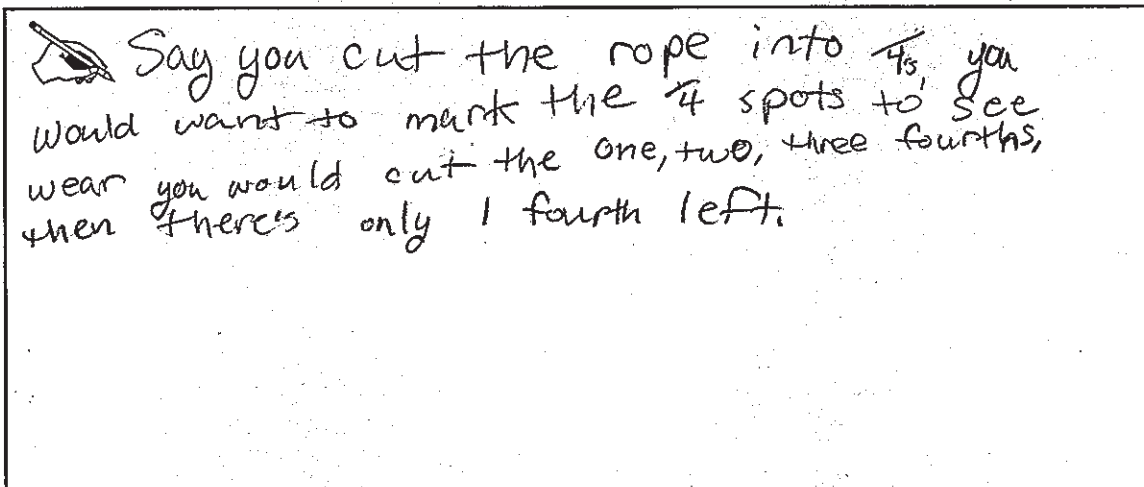 Say you cut the rope into /4s, you
would want to mark the /4 spots to see
wear you would cut the one, two, three fourths,
then there's only 1 fourth left.